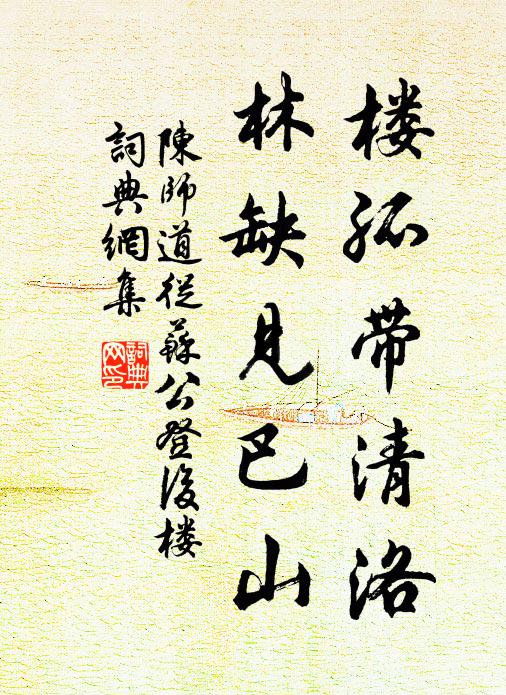 楼孤带清洛
林缺见巴山
陳師道從蘇公登後楼
詞典網集
詞典
网印